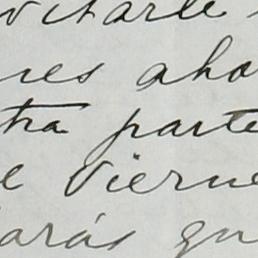 vitarle
nes aho
tra parte
e Vierne
arás qu